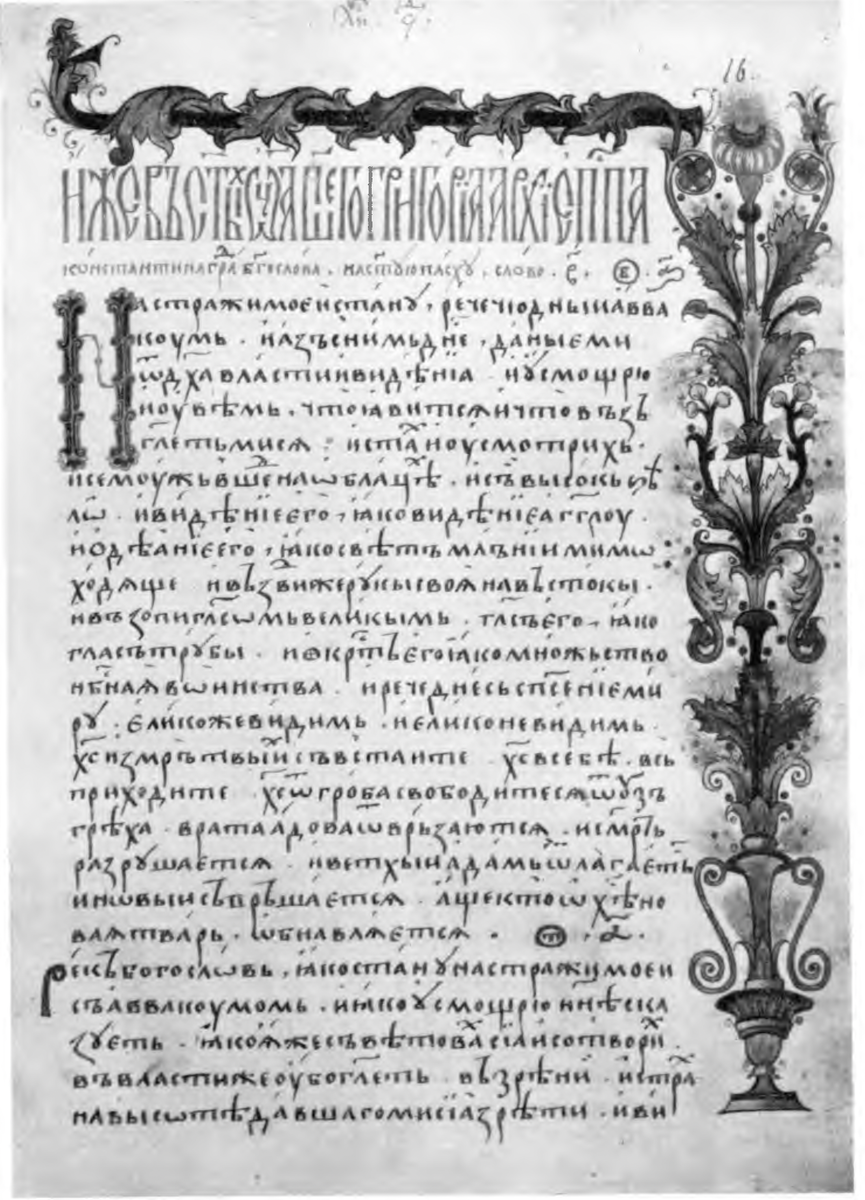 16.
И҆ЖЕ ВЪ СТ҃ЫХ Ѡ҆ЦА НШ҃ЕГО ГРИГОРЇА АРХЇЕП҃ПА
константина гра҃ бг҃ослова . на ст҃ую пасху . слово .
На стражи моеи стану , рече чюдныи авва
коумь . и азъ с нимь дн҃е , даныѥ ми
ѿ дх҃а власти и видѣнїа . и усмощрю
и оувѣмь , что ꙗвится и что въз
гл҃еть ми ся . и стах и оусмотрихь .
и се моужь вшⷣе на ѡблацѣ . и съ высокь ѕѣ
лѡ . и видѣнїе его , ꙗко видѣнїе агг҃лоу .
и ѡдѣанїе его , ꙗко свѣтъ млънїи мимѡ
ходяще и възⷣвиже рукы своя на въстокы .
и възопи гл҃сѡмь великымь . гл҃съ его , ꙗко
гласъ трубы . и ѡкрⷭтъ его ꙗко множьство
нб҃наѧ вѡинства . и рече днесь сп҃сенїе ми
ру . еликоже видимь . и елико не видимь .
хс҃ из мрътвыⷯи съвстаите хс҃ в себѣ . всь
приходите хс҃ ѿ гроба свободитеся ѿ ѫзъ
грѣха . врата адова ѿврьзаются . и смрⷮь
разрушается . и ветхыи адамь ѿлагаеть
и нѡвыи съврьшается . аще кто ѡ хѣ҃ но
вая тварь . ѡбнавляется .
Рекъ богословь , ꙗко стану на стражи моеи
съ аввакоумомь . и ꙗко усмощрю нн҃ѣ ска
зуеть . ꙗкоже съвѣтовах сїа и сотворих .
въ власти же оубо гл҃еть възрѣнїи . и страⷤ
на высѡтѣ давшаго ми сїа зрѣти . и ви